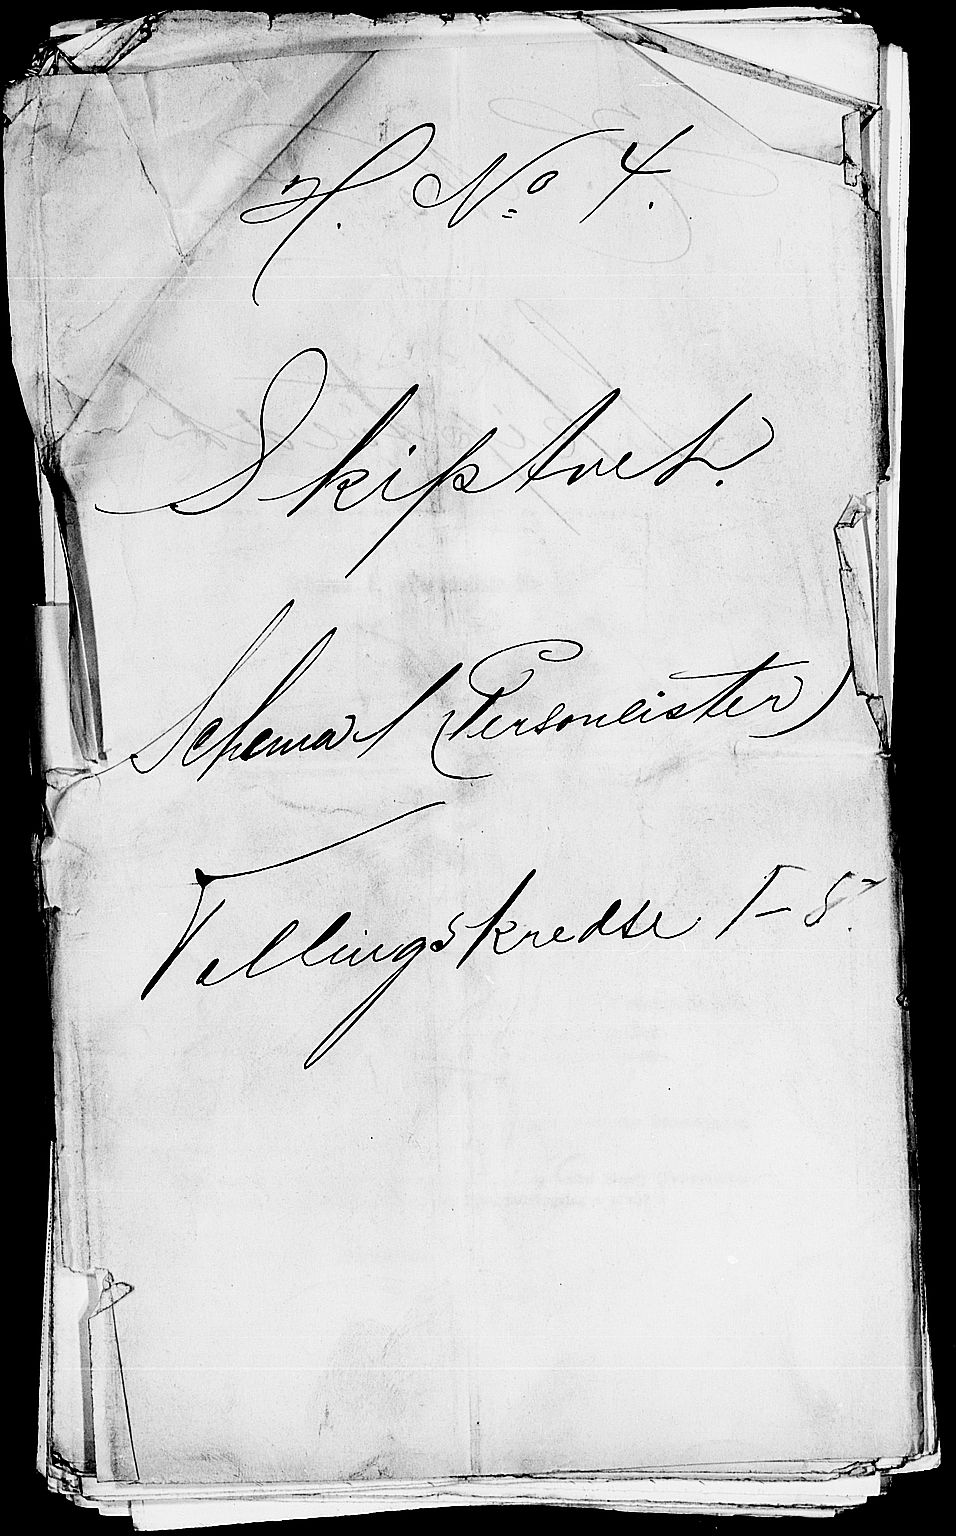 H. No 4.
Skiptvet.
Schema 1 (Personlister)
Tellingskredse 1–8.